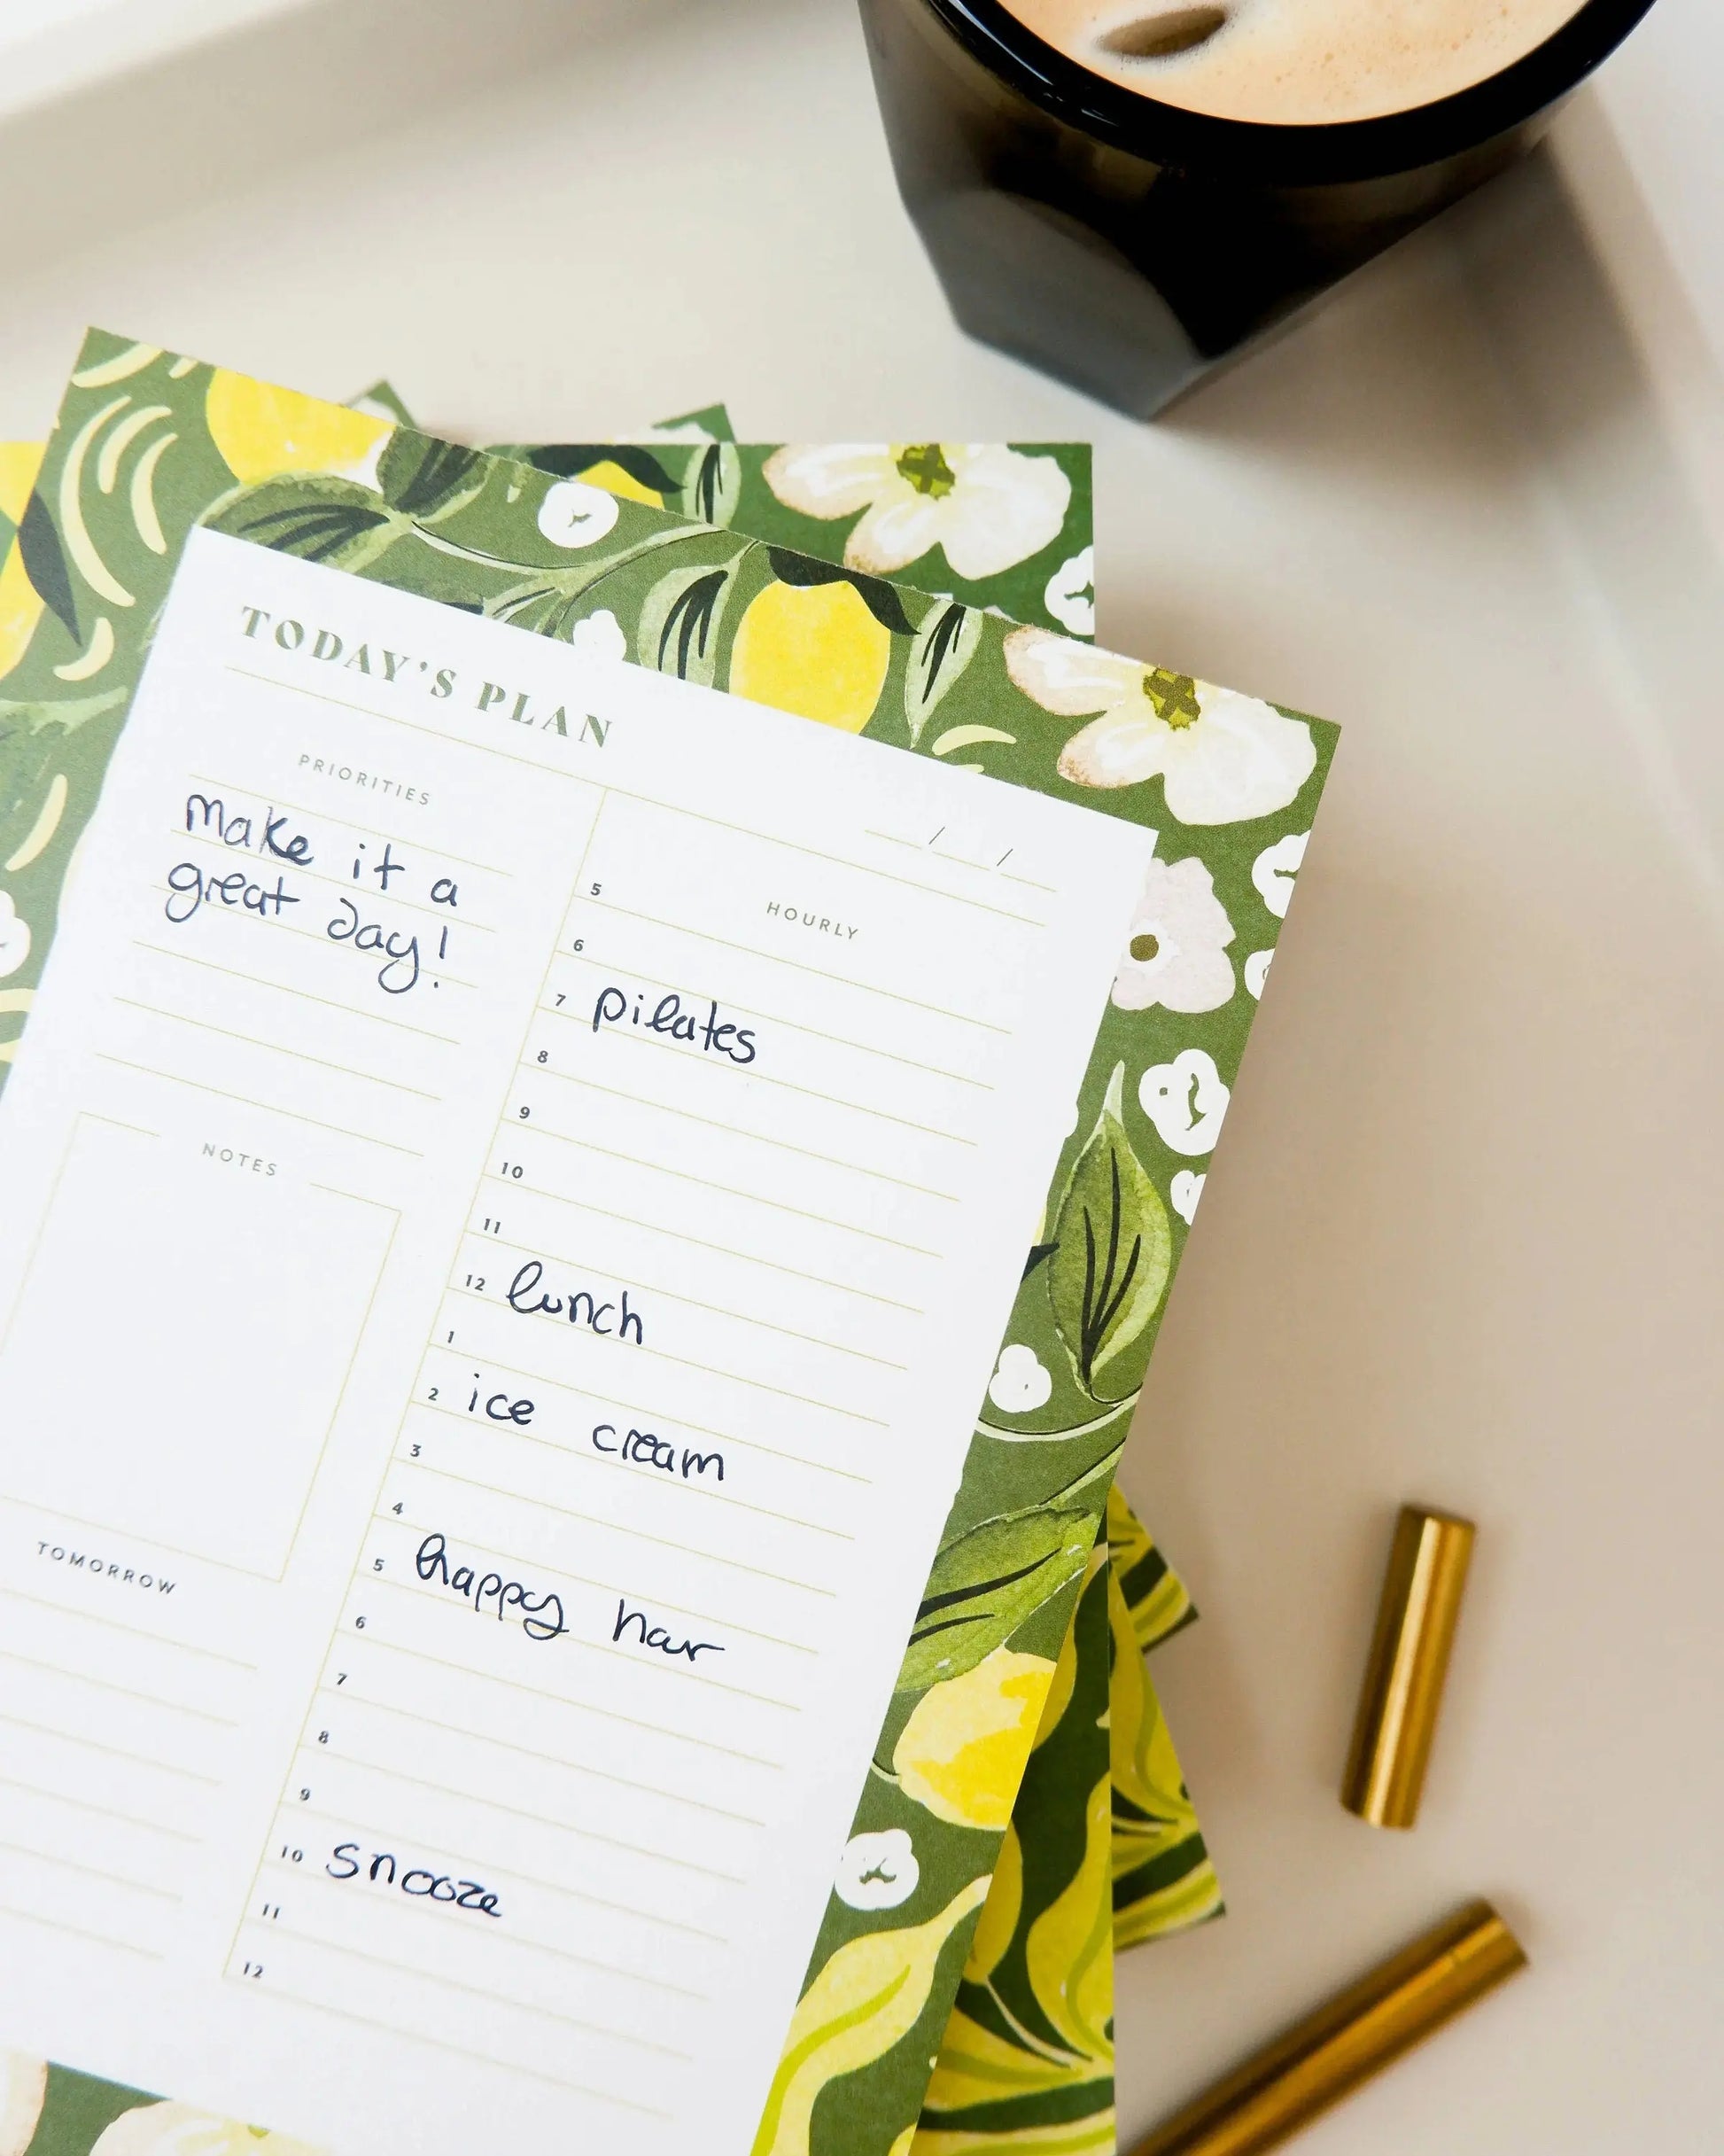 TODAY'S PLAN
PRIORITIES
make it a
great day!
NOTES
TOMORROW
/ /
HOURLY
5
6
7 pilates
8
9
10
11
12 lunch
1
2 ice cream
3
4
5 happy hour
6
7
8
9
10 snooze
11
12